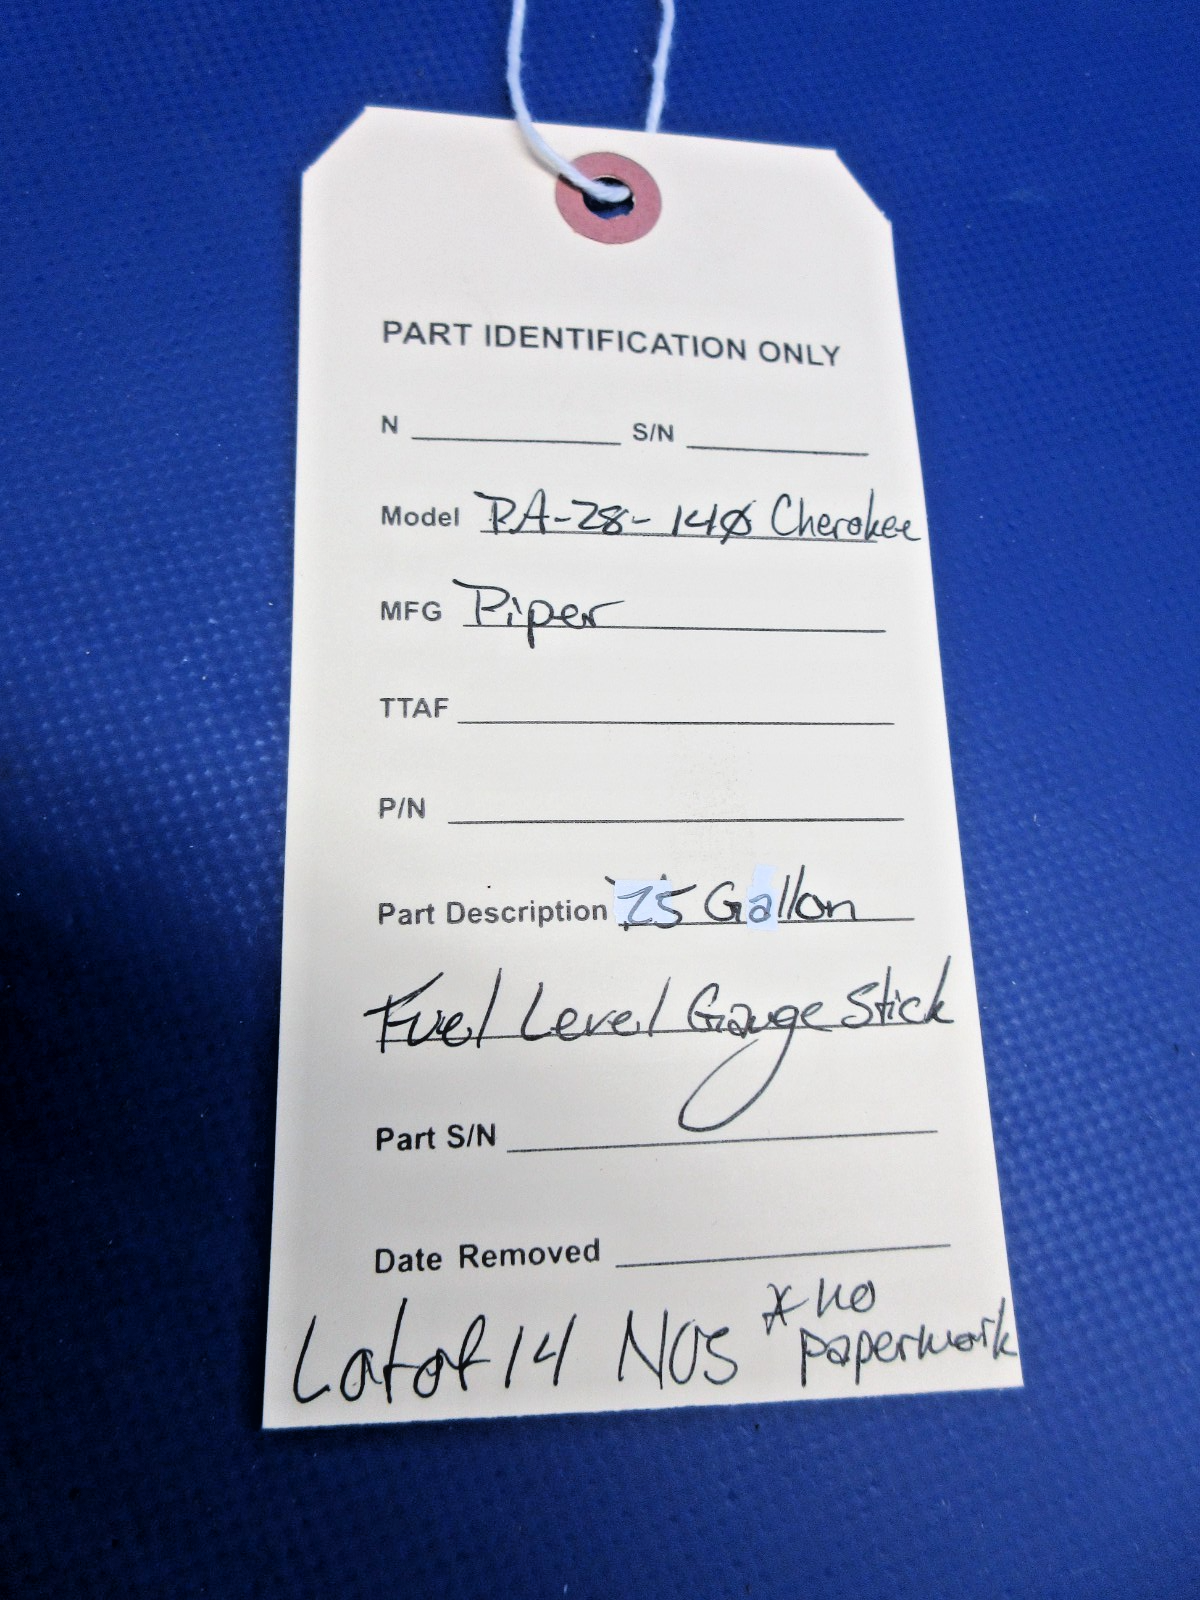 PART IDENTIFICATION ONLY
N S/N
Model PA-28-140 Cherokee
MFG Piper
TTAF
P/N
Part Description Gallon
Fuel Level Gauge Stick
Part S/N
Date Removed
Lot of 14 NOS * no
paperwork